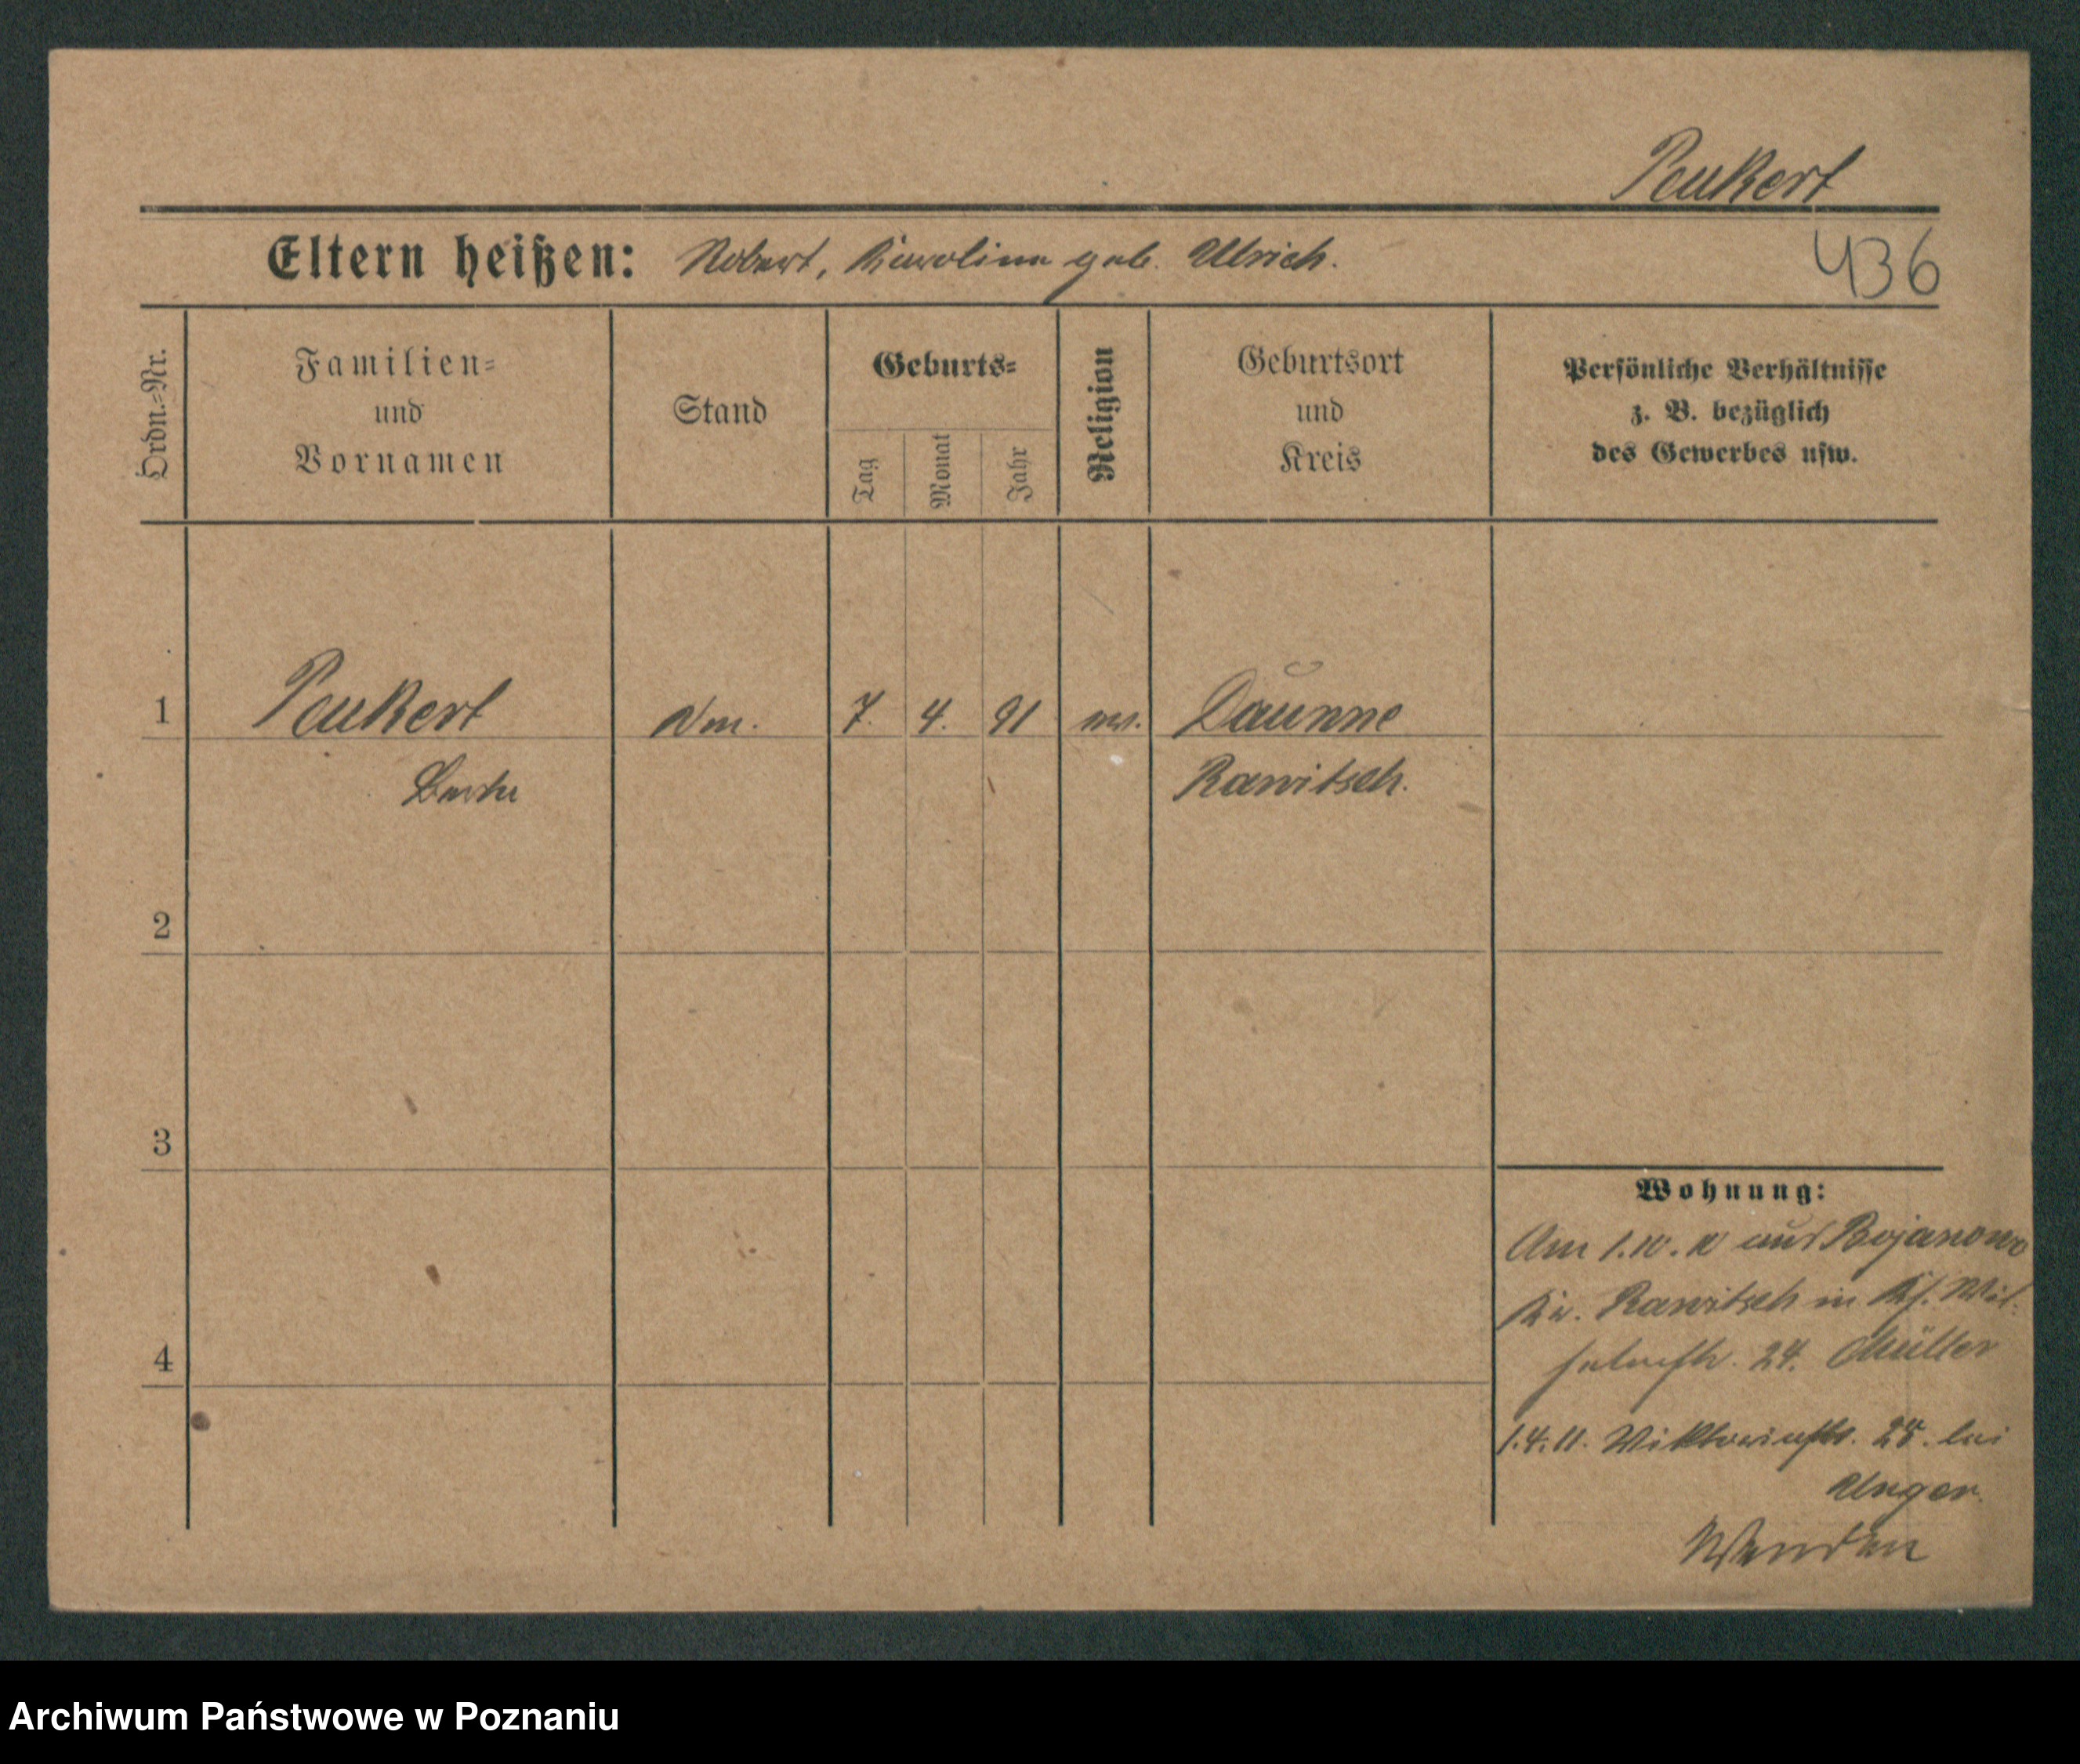 Peukert
Eltern heißen: Robert, Karoline geb. Ulrich.
436
Ordn.-Nr.
Familien-
und
Vornamen
Stand
Geburts-
Tag
Monat
Jahr
Religion
Geburtsort
und
Kreis
Persönliche Verhältnisse
z. B. bezüglich
des Gewerbes usw.
1
Peukert
7. 4. 91
Daunne
Rawitsch.
2
3
4
Wohnung:
Am 1.10.10 aus Bojanowo
Kr. Rawitsch in Wil-
helmstr. 24. Müller
1.4.11. Wiktoriastr. 25. bei
Unger.
Wenden